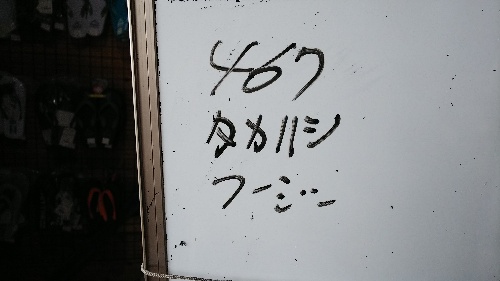 467
タカハシ
フージー